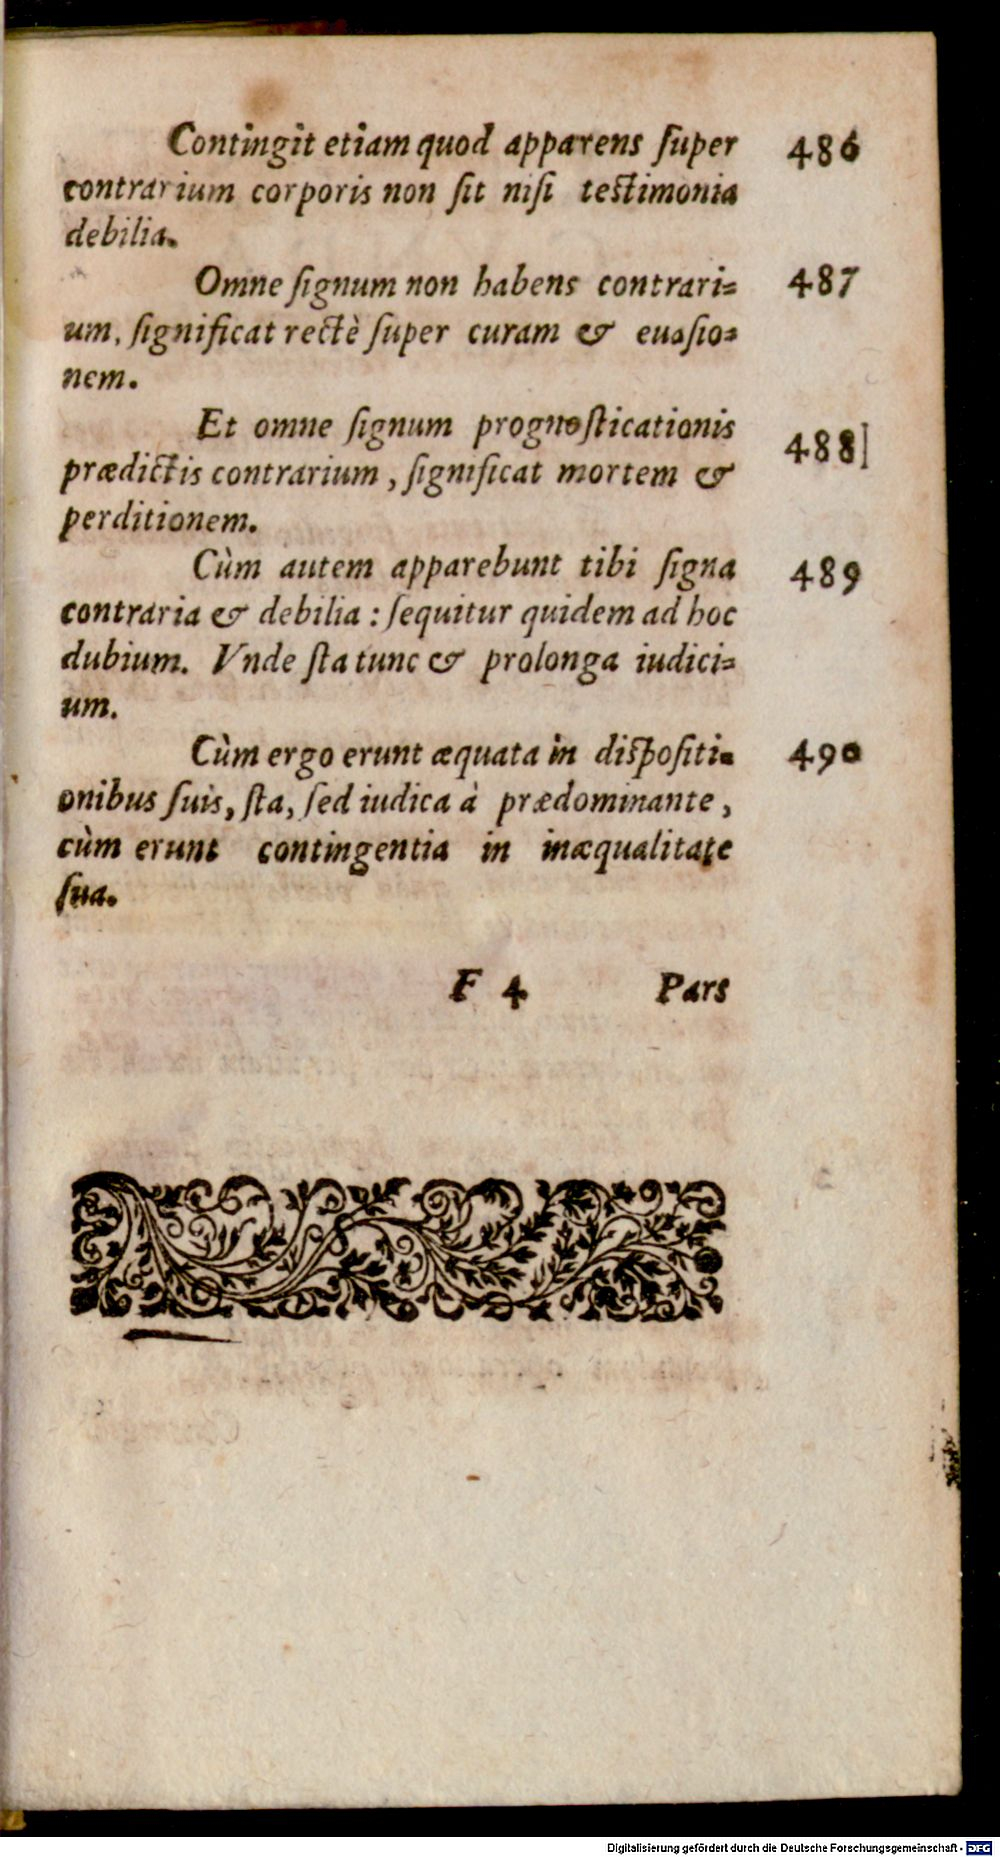 Contingit etiam quod apparens ſuper 486
contrarium corporis non ſit niſi teſtimonia
debilia.
Omne ſignum non habens contrari= 487
um, ſignificat rectè ſuper curam & evaſio=
nem.
Et omne ſignum prognoſticationis 488
prædictis contrarium, ſignificat mortem &
perditionem.
Cùm autem apparebunt tibi ſigna 489
contraria & debilia : ſequitur quidem ad hoc
dubium. Vnde ſta tunc & prolonga iudici=
um.
Cùm ergo erunt æquata in diſpoſiti= 490
onibus ſuis, ſta, ſed iudica à prædominante,
cùm erunt contingentia in inæqualitate
ſua.
F 4 Pars
Digitalisierung gefördert durch die Deutsche Forschungsgemeinschaft - DFG